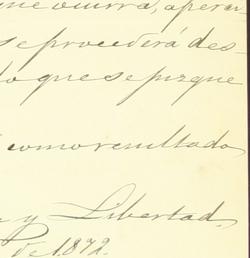 que ocurra, a
se procederá des
lo que se juzgue
como resultado
y Libertad.
de 1872.